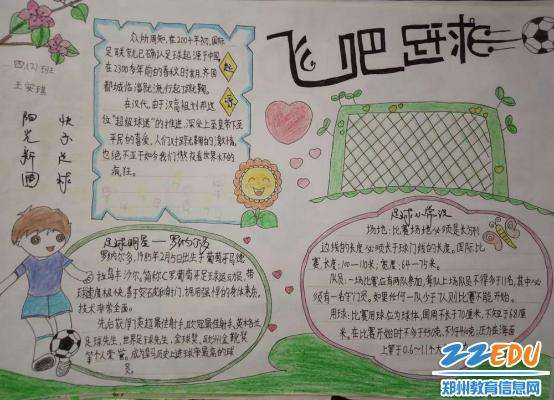 飞吧足球
四(2)班
王安琪
阳光新圃
快乐足球
众所周知，在2004年初，国际
足联就已确认足球起源于中国，
在2300多年前的春秋时期，齐国
都城临淄就流行起了蹴鞠。
在汉代，由于汉高祖刘邦这
位"超级球迷"的推进，深受上至皇帝下至
平民的喜爱，人们对野无蹴鞠的激情，
也绝不亚于如今我们熬夜看世界杯的
疯狂。
起
源
足球明星——罗纳尔多
罗纳尔多，1985年2月5日出生于葡萄牙马德
拉岛丰沙尔，简称C罗葡萄牙足球运动员，带
球速度极快，善于突破和射门，拥有强悍的身体素质，
技术非常全面。
足球小常设
场地：比赛场地必须是长方形
边线的长度必须长于球门线的长度。国际比
赛，长度：100-110米，宽度，64-75米。
队员：一场比赛应有两队参加，每队上场队员不得多于11名，其中必
须有一名守门员。如果任何一队少于7人则比赛不能开始。
用球：比赛用球应为球体，圆周不长于70厘米、不短于68厘
米，在比赛开始时不多于450克，不少于410克，压力在海面
上等于0.6~1.1个大
22EDU
郑州教育信息网